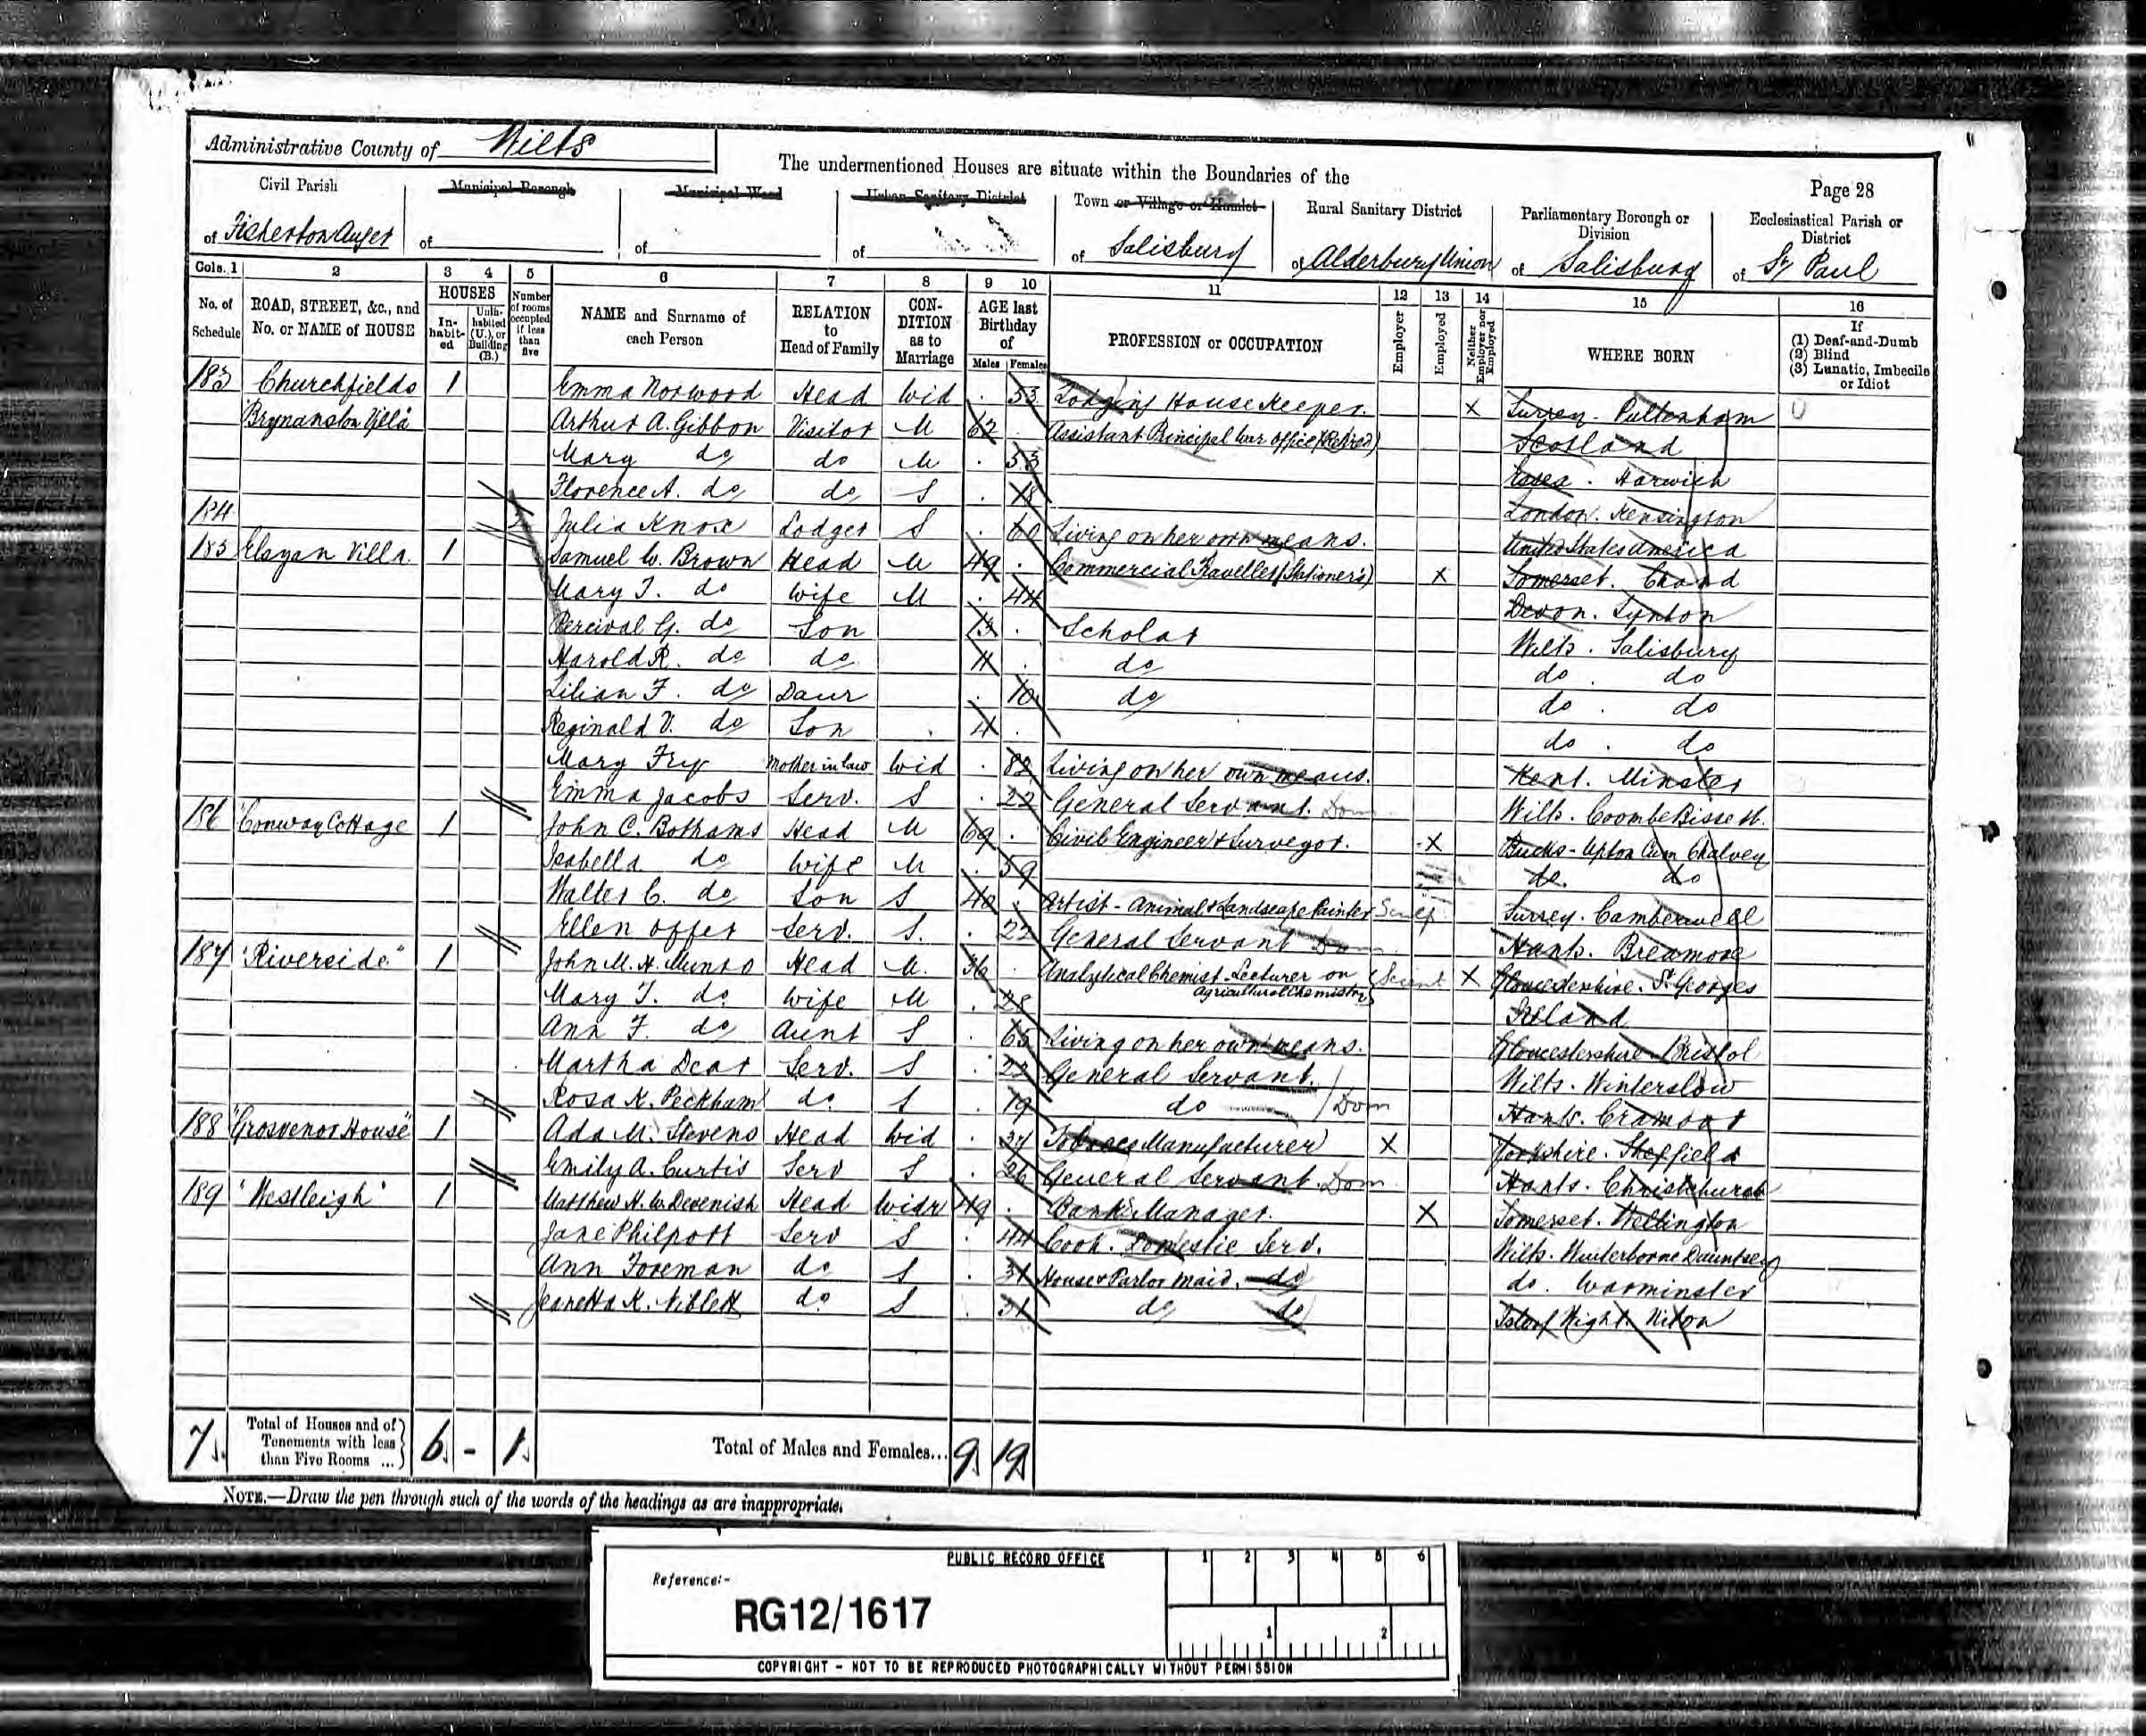 Administrative County of Wilts
The undermentioned Houses are situate within the Boundaries of the
Page 28
Civil Parish
of Fisherton Anger
Municipal Borough
of
Municipal Ward
of
Urban Sanitary District
of
Town or Village or Hamlet
of Salisbury
Rural Sanitary District
of Alderbury Union
Parliamentary Borough or Division
of Salisbury
Ecclesiastical Parish or District
of St Paul
Cols. 1 2 3 4 5 6 7 8 9 10 11 12 13 14 15 16
No. of Schedule
ROAD, STREET, &c., and No. or NAME of HOUSE
HOUSES
In-habit-ed
Unin-habited (U.), or Building (B.)
Number of rooms occupied if less than five
NAME and Surname of each Person
RELATION to Head of Family
CON-DITION as to Marriage
AGE last Birthday of
Males Females
PROFESSION or OCCUPATION
Employer
Employed
Neither Employer nor Employed
WHERE BORN
If
(1) Deaf-and-Dumb
(2) Blind
(3) Lunatic, Imbecile or Idiot
183 Churchfields 1 Emma Norwood Head Wid 53 Lodging House Keeper. X Surrey - Puttenham
Brynanston Villa Arthur A. Gibbon Visitor M 62 Assistant Principal War Office (Retired) Scotland
Mary do do M 53 Essex . Harwich
Florence A. do do S 18 London. Kensington
184 2 Julia Knox Lodger S 60 Living on her own means. United States America
185 Elsyan Villa. 1 Samuel W. Brown Head M 49 Commercial Traveller (Stationers) X Somerset. Chard
Mary J. do Wife M 44 Devon. Lynton
Percival G. do Son 13 Scholar Wilts. Salisbury
Harold R. do do 11 do do . do
Lilian F. do Daur 10 do do . do
Reginald V. do Son 4 do . do
Mary Fry Mother in law Wid 82 Living on her own means. Kent. Minster
Emma Jacobs Serv. S 22 General Servant. Dom Wilts. Coombe Bissett.
186 Conway Cottage 1 John C. Bothams Head M 69 Civil Engineer & Surveyor. X Bucks - Upton Cum Chalvey
Isabella do Wife M 59 do. do
Walter C. do Son S 40 Artist - Animal & Landscape Painter Sculp Surrey. Camberwell
Ellen Offer Serv. S. 22 General Servant Dom Hants. Breamore
187 "Riverside" 1 John M. H. Munro Head M. 36 Analytical Chemist. Lecturer on Agricultural Chemistry Scient X Gloucestershire. St Georges
Mary J. do. Wife M 28 Ireland
Ann F. do Aunt S 65 Living on her own means. Gloucestershire. Bristol
Martha Dear Serv. S 22 General Servant. Wilts. Winterslow
Rosa K. Peckham do. S 19 do Dom Hants.
188 "Grosvenor House" 1 Ada M. Stevens Head Wid 37 Manufacturer X Yorkshire. Sheffield
Emily A. Curtis Serv S 26 General Servant. Dom Hants. Christchurch
189 "Westleigh" 1 Matthew H. W. Devenish Head Widr 49 Bank Manager. X Somerset. Wellington
Jane Philpott Serv S 44 Cook. Domestic Serv. Wilts. Winterborne Dauntsey
Ann Foreman do S 31 House & Parlor Maid. do do. Warminster
Jeanetta K. Niblett do. S 31 do do Isle of Wight. Niton
7 Total of Houses and of Tenements with less than Five Rooms ... 6 - 1 Total of Males and Females... 9 19
NOTE.—Draw the pen through such of the words of the headings as are inappropriate.
PUBLIC RECORD OFFICE
1 2 3 4 5 6
Reference:-
RG12/1617
1 2
COPYRIGHT - NOT TO BE REPRODUCED PHOTOGRAPHICALLY WITHOUT PERMISSION